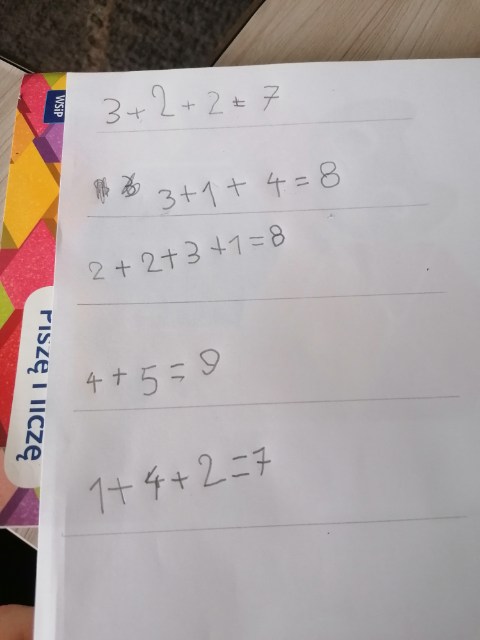 WSiP
3+2+2=7
3+1+4=8
2+2+3+1=8
Piszę i liczę
4+5=9
1+4+2=7